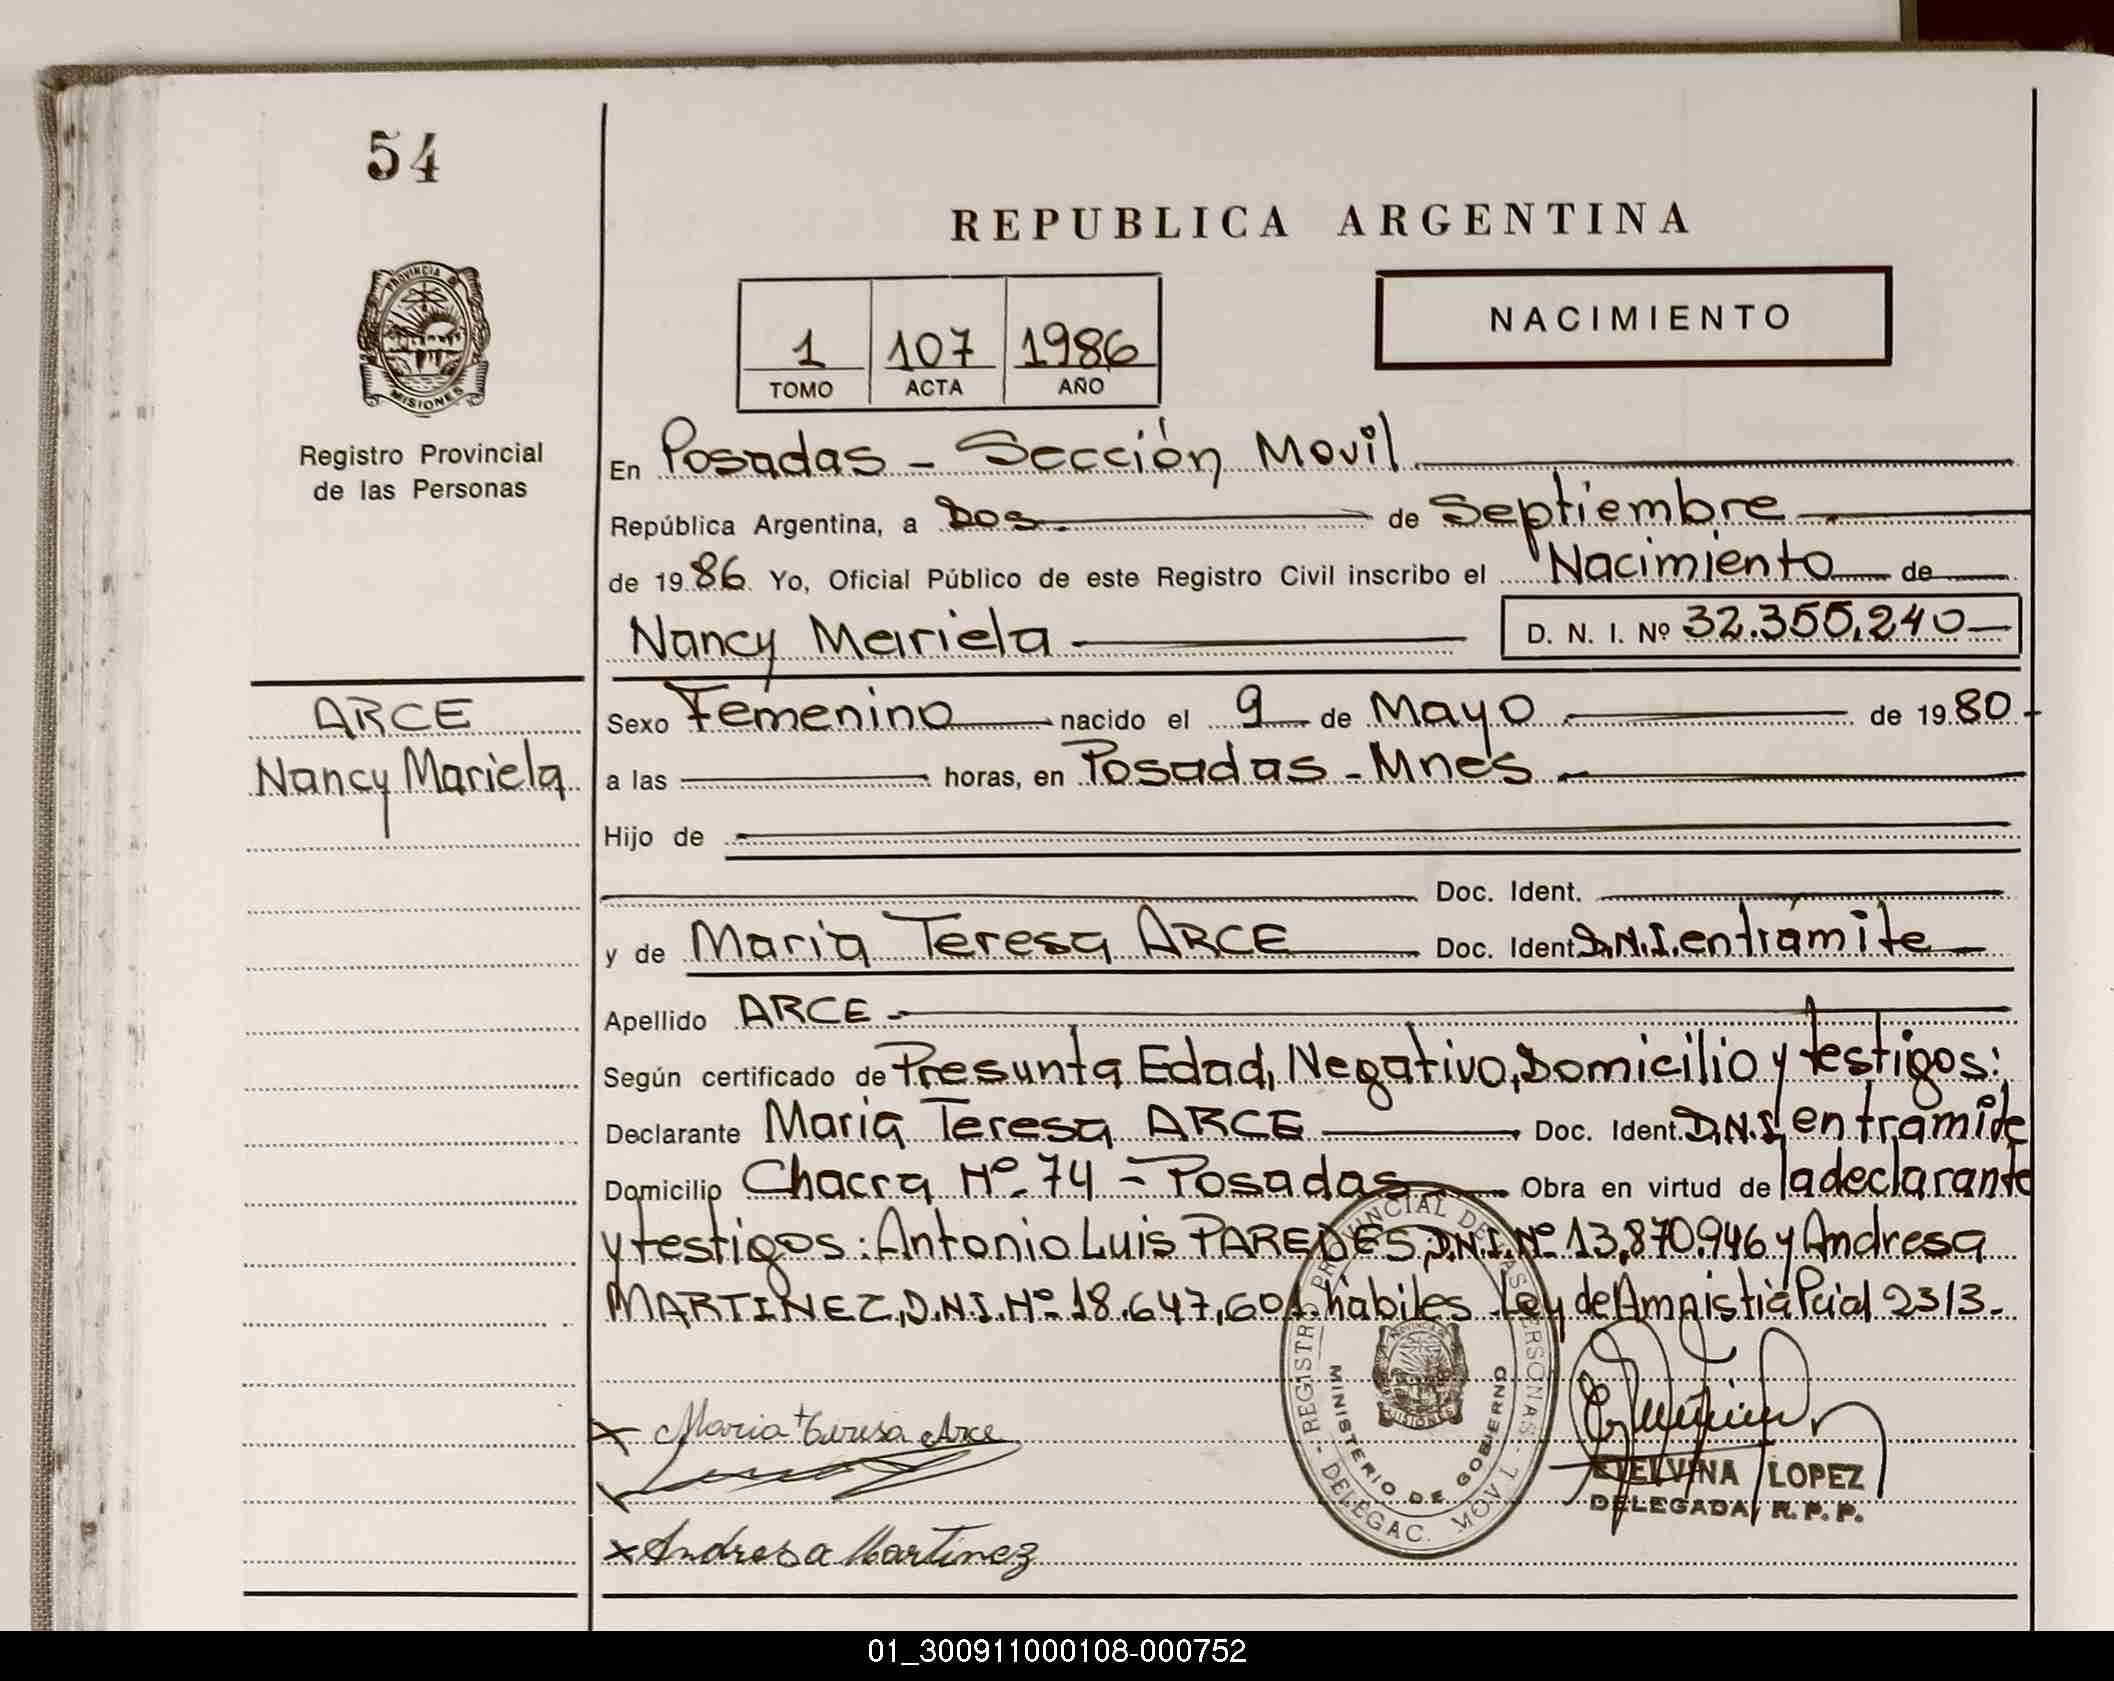 54
REPUBLICA ARGENTINA
PROVINCIA DE
MISIONES
1 107 1986
TOMO ACTA AÑO
NACIMIENTO
Registro Provincial
de las Personas
En Posadas - Sección Movil
República Argentina, a Dos de Septiembre
de 1986. Yo, Oficial Público de este Registro Civil inscribo el Nacimiento de
Nancy Mariela D. N. I. Nº 32.355.240
ARCE
Nancy Mariela
Sexo Femenino nacido el 9 de Mayo de 1980
a las horas, en Posadas - Mnes
Hijo de
Doc. Ident.
y de Maria Teresa ARCE Doc. Ident. D.N.I. en trámite
Apellido ARCE
Según certificado de Presunta Edad, Negativo, Domicilio y testigos:
Declarante Maria Teresa ARCE Doc. Ident. D.N.I. en tramite
Domicilio Chacra Nº 74 - Posadas Obra en virtud de la declarante
y testigos: Antonio Luis PAREDES, D.N.I. Nº 13.870.946 y Andresa
MARTINEZ, D.N.I. Nº 18.647.601. hábiles Ley de Amnistía Pcial 2313.
REGISTRO PROVINCIAL DE LAS PERSONAS
MINISTERIO DE GOBIERNO
MISIONES
DELEGAC. MOVIL
x Maria Teresa Arce
ETELVINA LOPEZ
DELEGADA R. P. P.
x Andresa Martinez
01_300911000108-000752